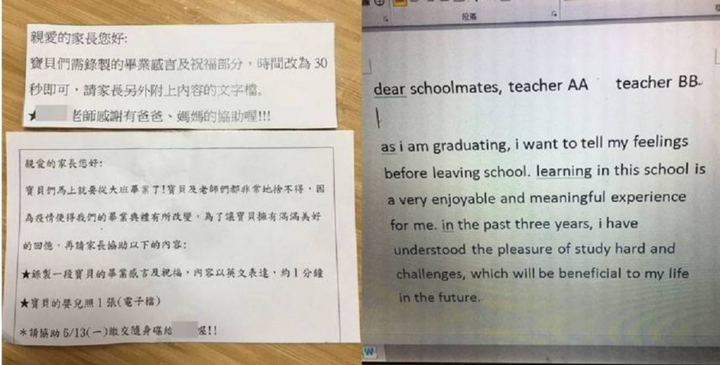 親愛的家長您好:
寶貝們需錄製的畢業感言及祝福部分，時間改為 30
秒即可，請家長另外附上內容的文字檔。
★ 老師感謝有爸爸、媽媽的協助喔!!!
親愛的家長您好:
寶貝們馬上就要從大班畢業了!寶貝及老師們都非常地捨不得，因
為疫情使得我們的畢業典禮有所改變，為了讓寶貝擁有滿滿美好
的回憶，再請家長協助以下的內容:
★錄製一段寶貝的畢業感言及祝福，內容以英文表達，約 1 分鐘
★寶貝的嬰兒照 1 張(電子檔)
＊請協助 6/13(一)繳交隨身碟給 喔!!
段落
dear schoolmates, teacher AA teacher BB
as i am graduating, i want to tell my feelings
before leaving school. learning in this school is
a very enjoyable and meaningful experience
for me. in the past three years, i have
understood the pleasure of study hard and
challenges, which will be beneficial to my life
in the future.
W